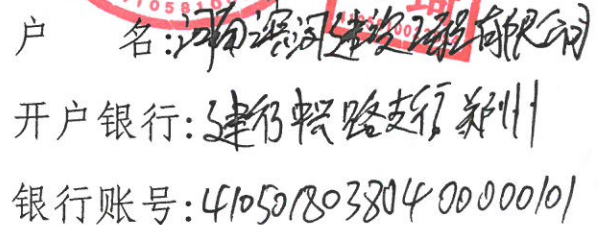 户 名:河南滨河建设工程有限公司
开户银行:建行中兴路支行郑州
银行账号:410501803804 00000101